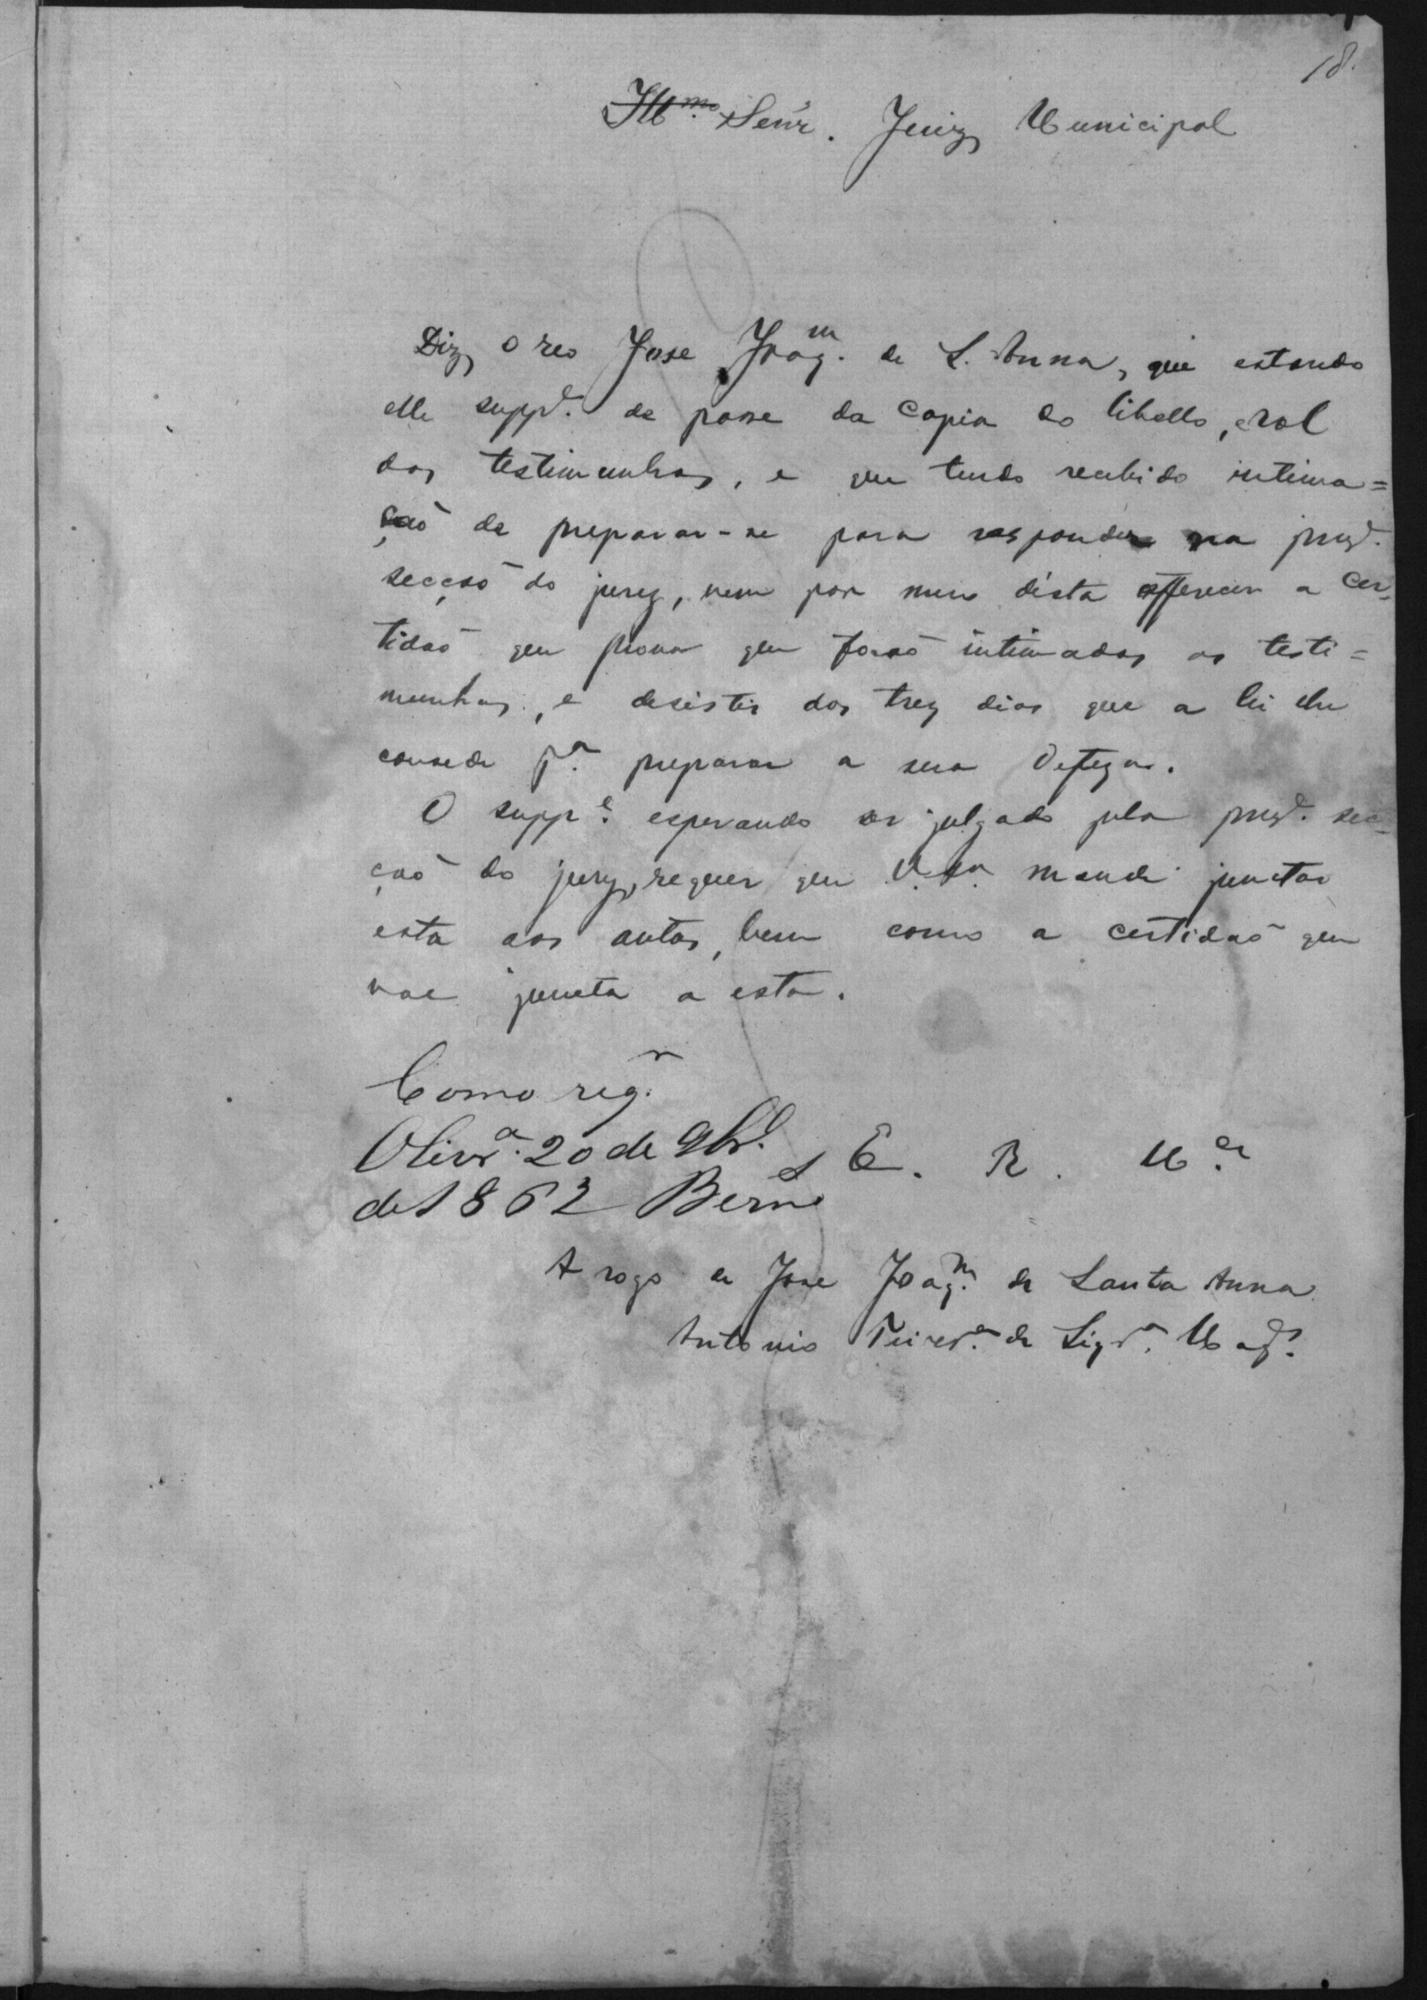 18.
Ill.mo Senr. Juiz Municipal
Diz o reo Jose Joaq.m de S. Anna, que estando
elle supp.e de posse da copia do libello, e rol
das testimunhas, e que tendo recebido intima=
ção de preparar-se para responder na prez.e
secção do jury, vem por meio désta offerecer a cer-
tidaõ que prova que foraõ intimadas as testi=
munhas, e desistir dos trez dias que a lei lhe
consede p.a preparar a sua defeza.
O supp.e esperando ser julgado pela prez.e sec-
çaõ do jury, requer que V.S.a mande junctar
esta aos autos, bem como a certidaõ que
vae juncta a esta.
Como req.r
Olivr.a 20 de 9br.o
de 1862
E. R. M.ce
A rogo de Jose Joaq.m de Santa Anna
Antonio de Siqr.a